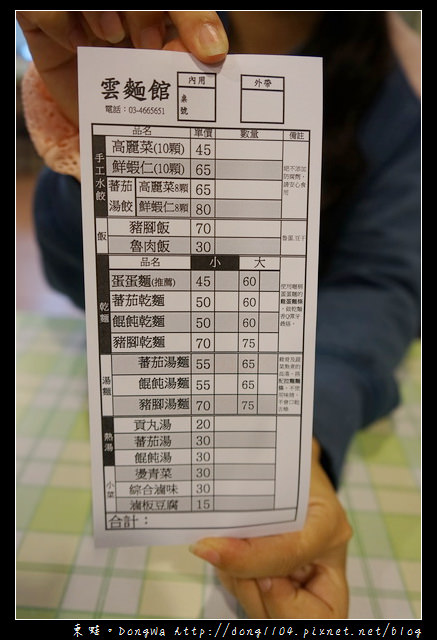 雲麵館
電話：03-4665651
內用
桌號
外帶
品名 單價 數量 備註
手工水餃
高麗菜(10顆) 45
鮮蝦仁(10顆) 65
蕃茄湯餃
高麗菜8顆 65
鮮蝦仁8顆 80
飯
豬腳飯 70
魯肉飯 30
魯蛋,豆干
品名 小 大
乾麵
蛋蛋麵(推薦) 45 60
蕃茄乾麵 50 60
餛飩乾麵 50 60
豬腳乾麵 70 75
湯麵
蕃茄湯麵 55 65
餛飩湯麵 55 65
豬腳湯麵 70 75
熱湯
貢丸湯 20
蕃茄湯 30
餛飩湯 30
小菜
燙青菜 30
綜合滷味 30
滷板豆腐 15
合計：
東蛙。DongWa http://dong1104.pixnet.net/blog